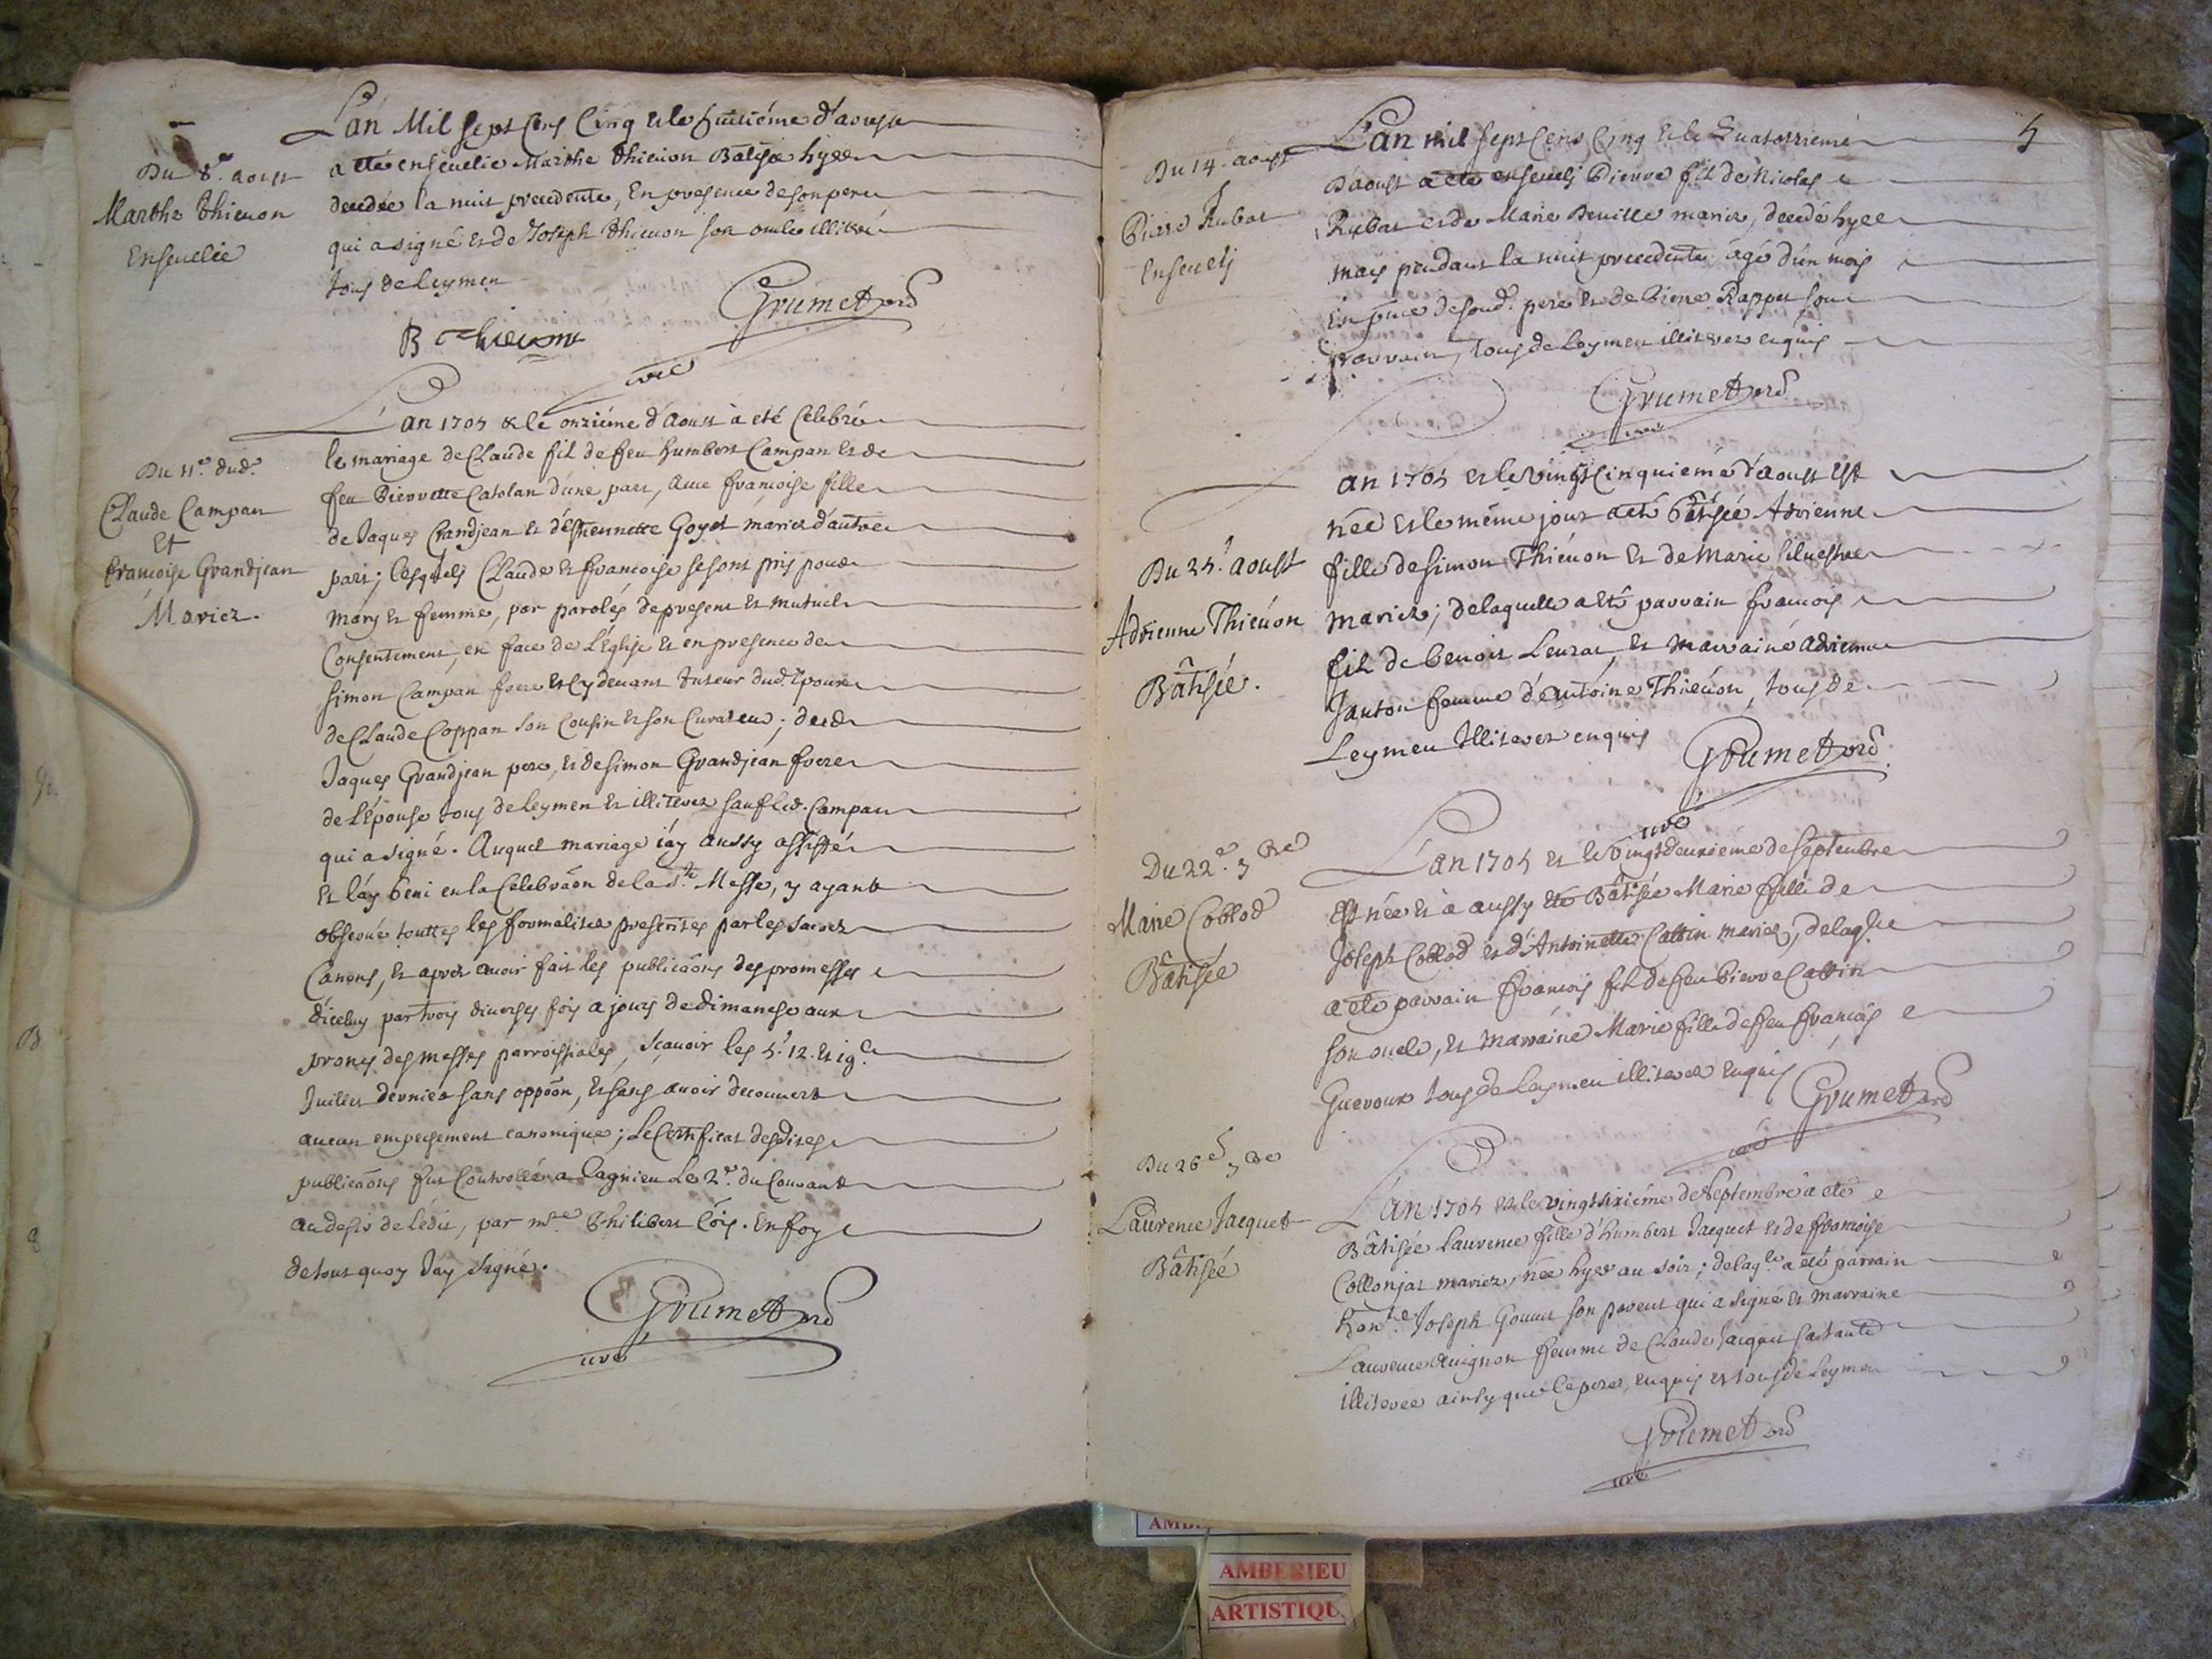 L'an Mil sept Cens Cinq et le huitiéme d'aoust
Du 8.e aoust
Marthe thieuon
Enseuelie
a eté enseuelie Marthe thieuon Batisée hyer
decedée la nuit precedente, En presence de son pere
qui a signé et de Joseph thieuon son oncle illitéré
tous de leymen
Grumet
B Thieuon
curé
L'an 1705 & le onziéme d'Aoust à eté Celebré
Du 11.e dud.
Claude Campan
Et
francoise Grandjean
Mariez.
le mariage de Claude fil de feu humbert Campan et de
feu Pierrette Catolan d'une part, auec francoise fille
de Jaques Grandjean et d'éstiennette Goyet mariez d'autre
part; lesquels Claude et francoise se sont pris pour
mary et femme, par paroles de present et mutuel
Consentement, en face de L'Eglise et en presence de
simon Campan frere et cy deuant tuteur dud. Epoux
de Claude Coppan son Cousin et son Curateur; dud.
Jaques Grandjean pere, et de simon Grandjean frere
de L'Epouse tous de leymen et illiterez sauf led. Campan
qui a signé. Auquel mariage j'ay aussy assisté
et l'ay beni en la Celebraõn de la s.te Messe, y ayant
obserué touttes les formalitez prescrites par les sacrez
Canons, et aprez auoir fait les publicaõns des promesses
d'iceluy par trois diuerses fois a jours de dimanche aux
prones des messes parroissiales, scauoir les 5. 12. et 19.e
Juillet dernier sans oppoõn, et sans auoir decouuert
aucun empeschement canonique; le Certificat desdites
publicaõns fut Controllée a Lagnieu le 2.e du Courant
au desir de l'edit, par m.re Philibert Cóis. En foy
de tout quoy J'ay signé.
Grumet
curé
5
L'an mil sept Cens Cinq et le Quatorziéme
Du 14. aoust
Pierre Rubat
Enseueli
d'aoust a eté enseueli Pierre fil de Nicolas
Rubat et de Marie Beuille mariez, decedé hyer
mais pendant la nuit precedente agé d'un mois
En pnce de sond. pere et de Pierre Rappet son
parrain, tous de Leymen illiterez enquis
Grumet
curé
L'an 1705 et le vingt Cinquiéme d'aoust est
Du 25. aoust
Adrienne Thieuon
Bâtisée.
née et le même jour a eté bâtisée Adrienne
fille de simon Thieuon et de Marie siluestre
mariez; de laquelle a eté parrain francois
fil de benoit Leurat, et marraine adrienne
Janton femme d'antoine Thieuon, tous de
Leymen Illiterez enquis
Grumet
curé
L'an 1705 et le vingt deuxiéme de septembre
Du 22.e 7bre
Marie Collod
Bâtisée
Est née et à aussy eté Bâtisée Marie fille de
Joseph Collod et d'Antoinette Cattin mariez, de laqlle
a eté parrain francois fil de feu Pierre Cattin
son oncle, et marraine Marie fille de feu francois
Gueroux tous de leymen illiterez Enquis
Grumet
curé
Du 26.e 7bre
Laurence Jacquet
Bâtisée
L'an 1705 et le vingt sixiéme de Septembre a eté
Bâtisée Laurence fille d'humbert Jacquet et de francoise
Collonjat mariez, née hyer au soir; de laq.le a eté parrain
hon.ble Joseph Gouuet son parent qui a signé et marraine
Laurence auignon femme de Claude Jacquet sa tante
illiterée ainsy que le pere, enquis et tous de Leymen
Grumet
curé
AMBERIEU
ARTISTIQU